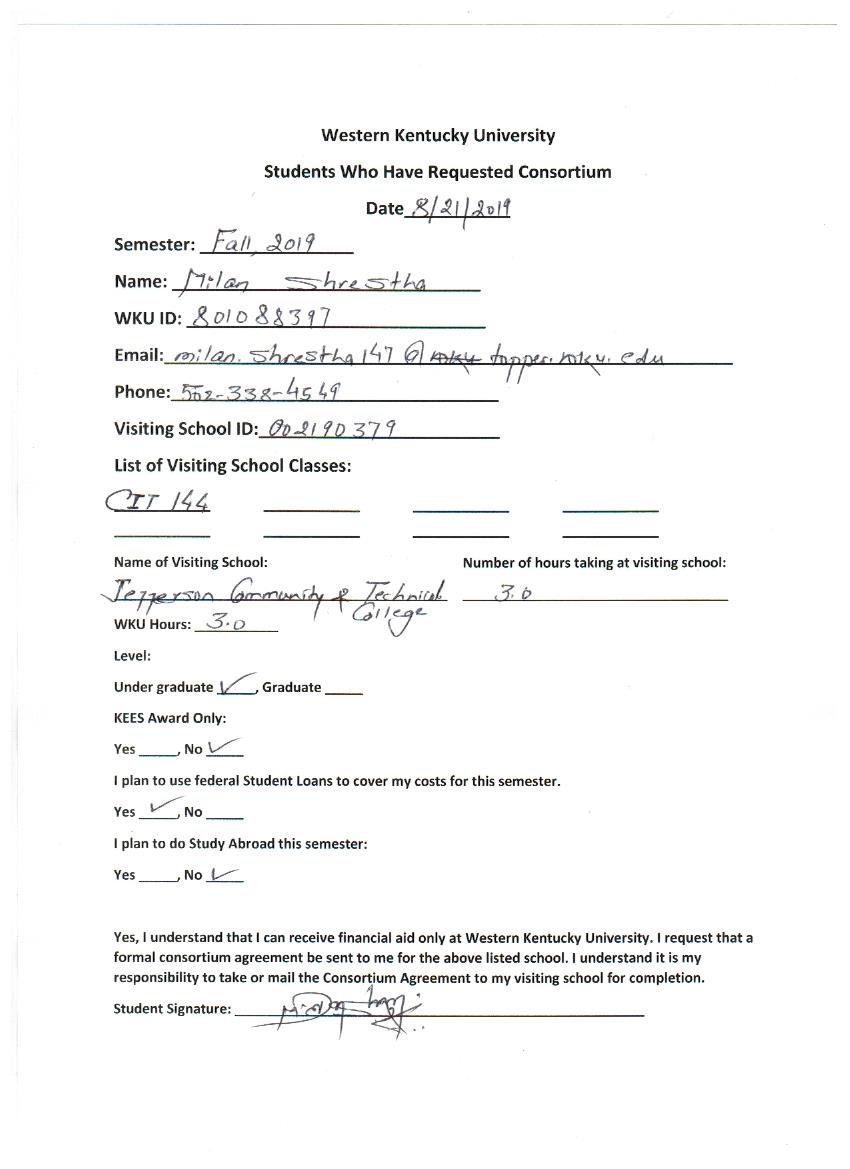 Western Kentucky University
Students Who Have Requested Consortium
Date 8/21/2019
Semester: Fall, 2019
Name: Milan Shrestha
WKU ID: 801088397
Email: milan.shrestha147@ wku topper.wku.edu
Phone: 502-338-4549
Visiting School ID: 002190379
List of Visiting School Classes:
CIT 144
Name of Visiting School: Number of hours taking at visiting school:
Jefferson Community & Technical 3.0
College
WKU Hours: 3.0
Level:
Under graduate ✓, Graduate
KEES Award Only:
Yes , No ✓
I plan to use federal Student Loans to cover my costs for this semester.
Yes ✓, No
I plan to do Study Abroad this semester:
Yes , No ✓
Yes, I understand that I can receive financial aid only at Western Kentucky University. I request that a
formal consortium agreement be sent to me for the above listed school. I understand it is my
responsibility to take or mail the Consortium Agreement to my visiting school for completion.
Student Signature: